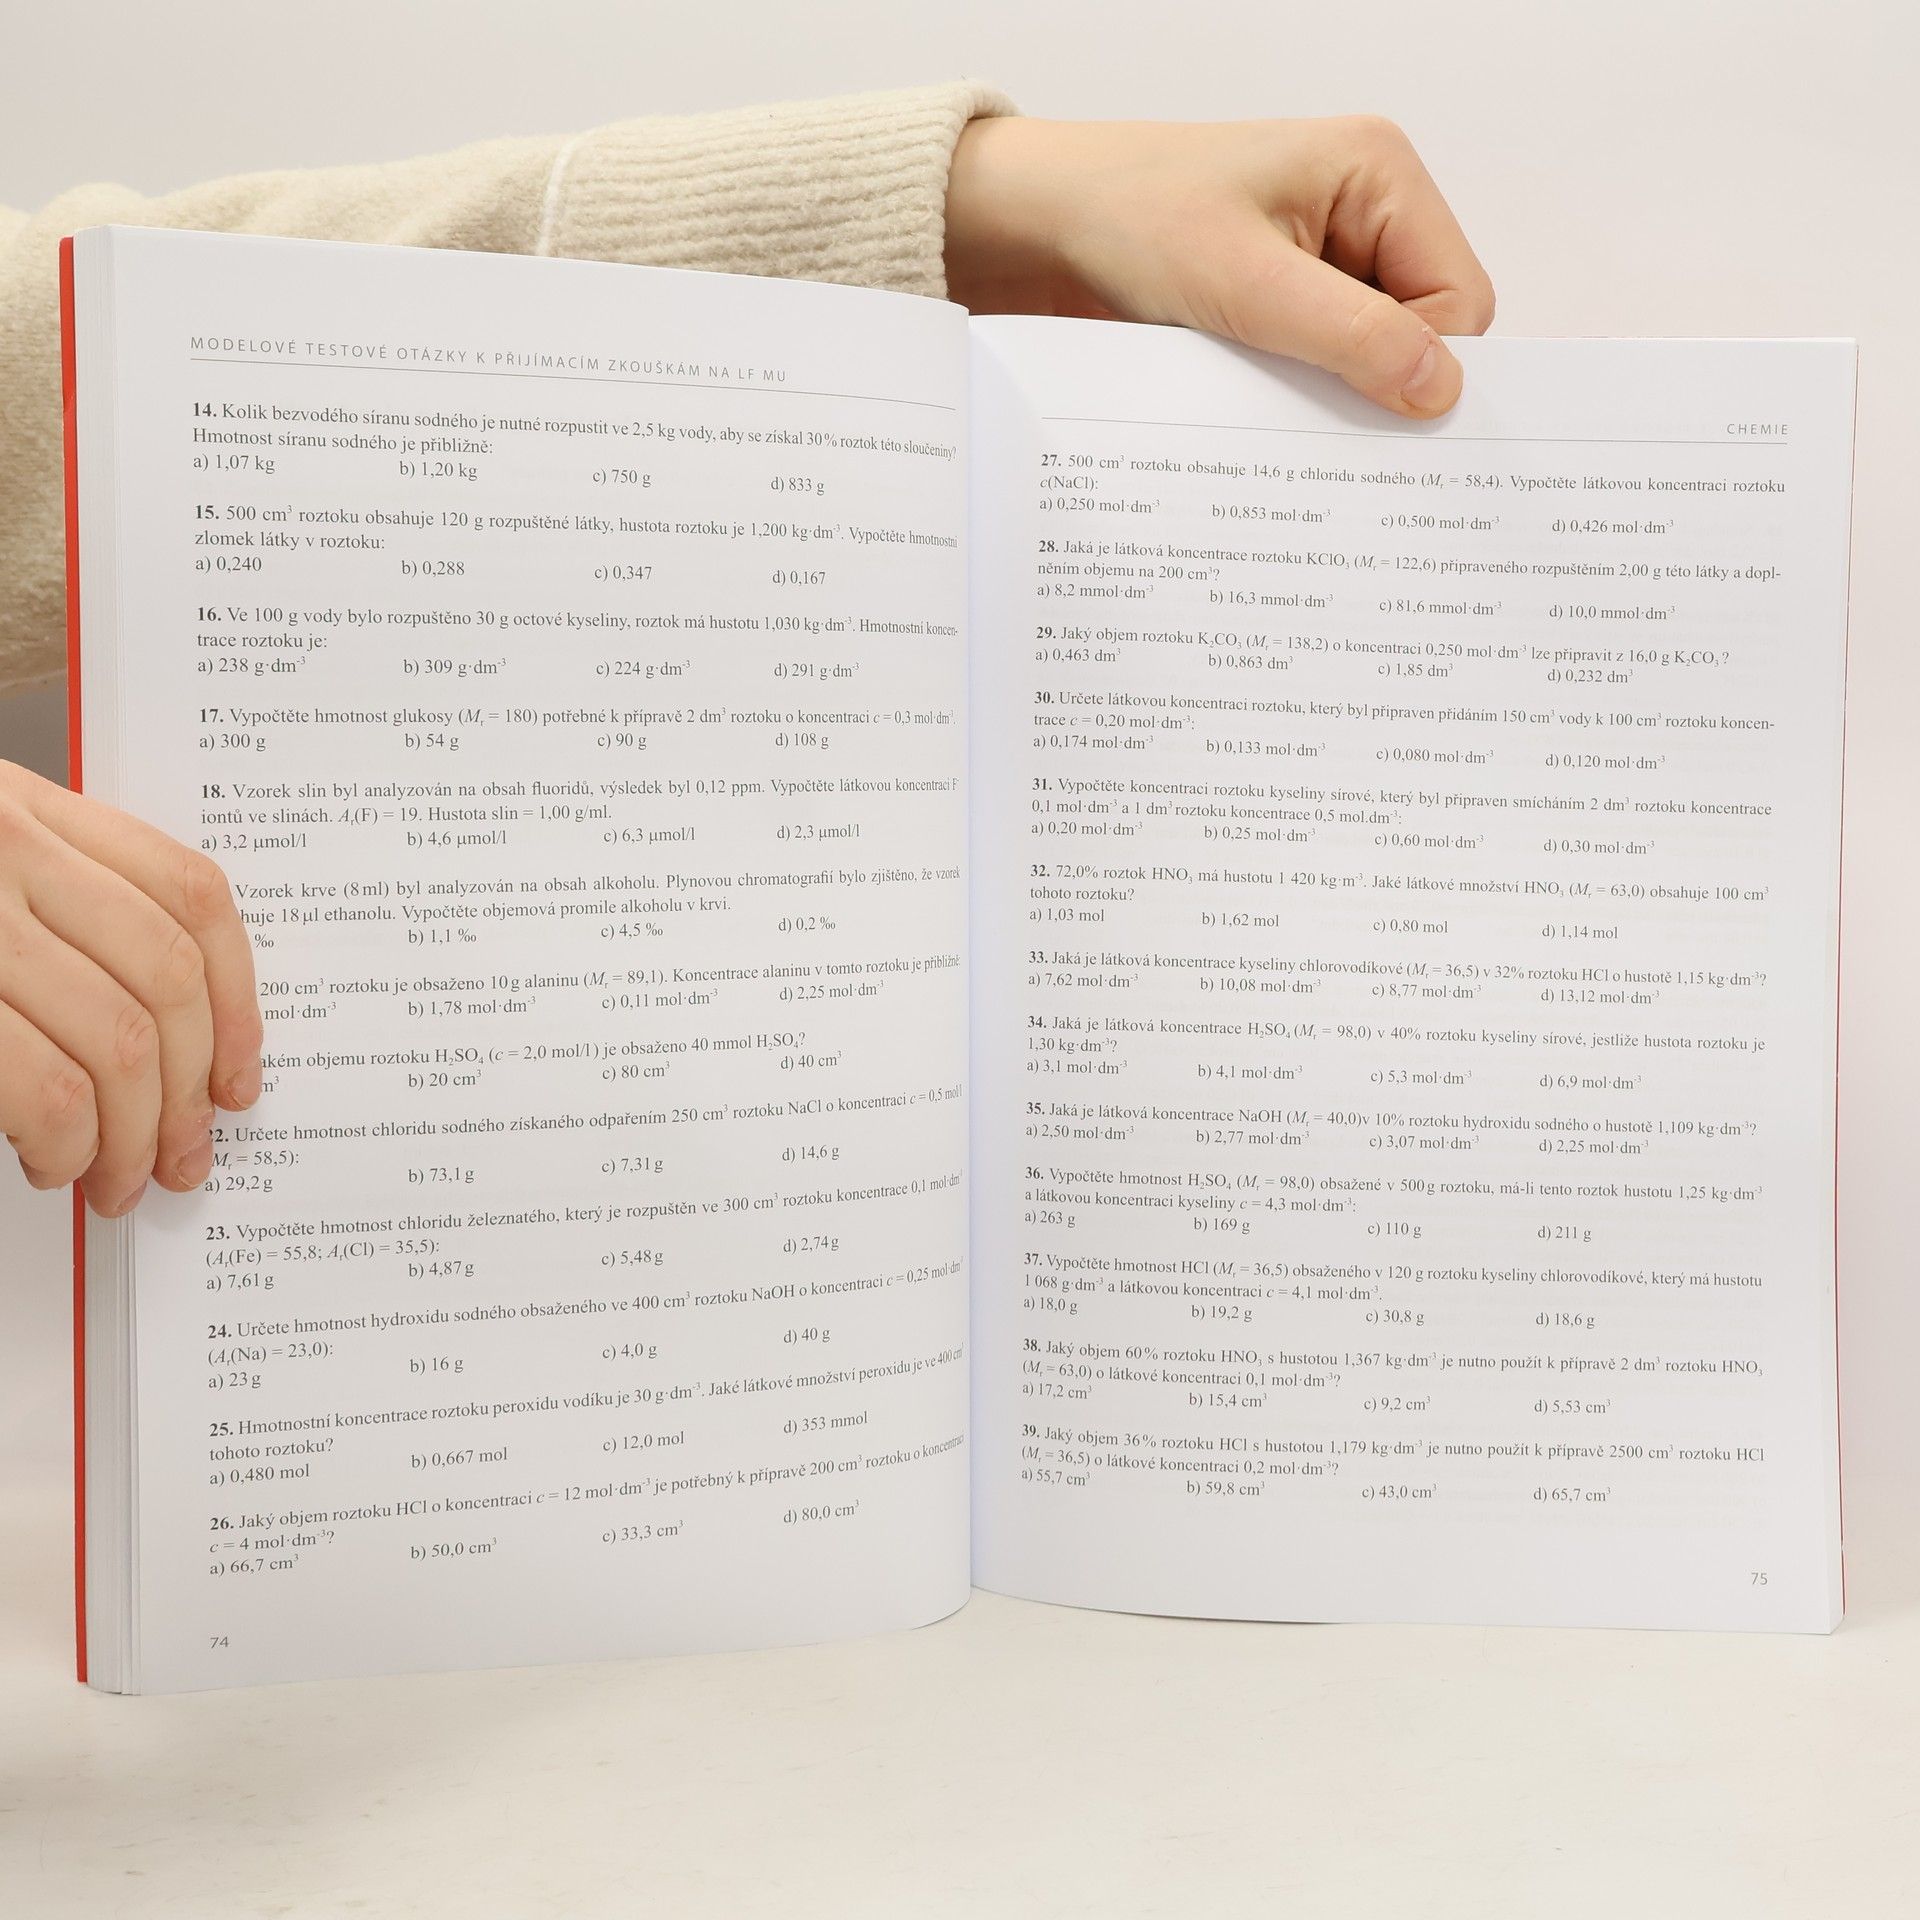 MODELOVÉ TESTOVÉ OTÁZKY K PŘIJÍMACÍM ZKOUŠKÁM NA LF MU
14. Kolik bezvodého síranu sodného je nutné rozpustit ve 2,5 kg vody, aby se získal 30 % roztok této sloučeniny?
Hmotnost síranu sodného je přibližně:
a) 1,07 kg b) 1,20 kg c) 750 g d) 833 g
15. 500 cm³ roztoku obsahuje 120 g rozpuštěné látky, hustota roztoku je 1,200 kg·dm⁻³. Vypočtěte hmotnostní
zlomek látky v roztoku:
a) 0,240 b) 0,288 c) 0,347 d) 0,167
16. Ve 100 g vody bylo rozpuštěno 30 g octové kyseliny, roztok má hustotu 1,030 kg·dm⁻³. Hmotnostní koncen-
trace roztoku je:
a) 238 g·dm⁻³ b) 309 g·dm⁻³ c) 224 g·dm⁻³ d) 291 g·dm⁻³
17. Vypočtěte hmotnost glukosy (Mᵣ = 180) potřebné k přípravě 2 dm³ roztoku o koncentraci c = 0,3 mol·dm⁻³.
a) 300 g b) 54 g c) 90 g d) 108 g
18. Vzorek slin byl analyzován na obsah fluoridů, výsledek byl 0,12 ppm. Vypočtěte látkovou koncentraci F⁻
iontů ve slinách. Aᵣ(F) = 19. Hustota slin = 1,00 g/ml.
a) 3,2 µmol/l b) 4,6 µmol/l c) 6,3 µmol/l d) 2,3 µmol/l
Vzorek krve (8 ml) byl analyzován na obsah alkoholu. Plynovou chromatografií bylo zjištěno, že vzorek
huje 18 µl ethanolu. Vypočtěte objemová promile alkoholu v krvi.
‰ b) 1,1 ‰ c) 4,5 ‰ d) 0,2 ‰
200 cm³ roztoku je obsaženo 10 g alaninu (Mᵣ = 89,1). Koncentrace alaninu v tomto roztoku je přibližně:
mol·dm⁻³ b) 1,78 mol·dm⁻³ c) 0,11 mol·dm⁻³ d) 2,25 mol·dm⁻³
akém objemu roztoku H₂SO₄ (c = 2,0 mol/l) je obsaženo 40 mmol H₂SO₄?
m³ b) 20 cm³ c) 80 cm³ d) 40 cm³
22. Určete hmotnost chloridu sodného získaného odpařením 250 cm³ roztoku NaCl o koncentraci c = 0,5 mol/l
Mᵣ = 58,5):
a) 29,2 g b) 73,1 g c) 7,31 g d) 14,6 g
23. Vypočtěte hmotnost chloridu železnatého, který je rozpuštěn ve 300 cm³ roztoku koncentrace 0,1 mol·dm⁻³
(Aᵣ(Fe) = 55,8; Aᵣ(Cl) = 35,5):
a) 7,61 g b) 4,87 g c) 5,48 g d) 2,74 g
24. Určete hmotnost hydroxidu sodného obsaženého ve 400 cm³ roztoku NaOH o koncentraci c = 0,25 mol·dm⁻³
(Aᵣ(Na) = 23,0):
a) 23 g b) 16 g c) 4,0 g d) 40 g
25. Hmotnostní koncentrace roztoku peroxidu vodíku je 30 g·dm⁻³. Jaké látkové množství peroxidu je ve 400 cm³
tohoto roztoku?
a) 0,480 mol b) 0,667 mol c) 12,0 mol d) 353 mmol
26. Jaký objem roztoku HCl o koncentraci c = 12 mol·dm⁻³ je potřebný k přípravě 200 cm³ roztoku o koncentraci
c = 4 mol·dm⁻³?
a) 66,7 cm³ b) 50,0 cm³ c) 33,3 cm³ d) 80,0 cm³
74
CHEMIE
27. 500 cm³ roztoku obsahuje 14,6 g chloridu sodného (Mᵣ = 58,4). Vypočtěte látkovou koncentraci roztoku
c(NaCl):
a) 0,250 mol·dm⁻³ b) 0,853 mol·dm⁻³ c) 0,500 mol·dm⁻³ d) 0,426 mol·dm⁻³
28. Jaká je látková koncentrace roztoku KClO₃ (Mᵣ = 122,6) připraveného rozpuštěním 2,00 g této látky a dopl-
něním objemu na 200 cm³?
a) 8,2 mmol·dm⁻³ b) 16,3 mmol·dm⁻³ c) 81,6 mmol·dm⁻³ d) 10,0 mmol·dm⁻³
29. Jaký objem roztoku K₂CO₃ (Mᵣ = 138,2) o koncentraci 0,250 mol·dm⁻³ lze připravit z 16,0 g K₂CO₃?
a) 0,463 dm³ b) 0,863 dm³ c) 1,85 dm³ d) 0,232 dm³
30. Určete látkovou koncentraci roztoku, který byl připraven přidáním 150 cm³ vody k 100 cm³ roztoku koncen-
trace c = 0,20 mol·dm⁻³:
a) 0,174 mol·dm⁻³ b) 0,133 mol·dm⁻³ c) 0,080 mol·dm⁻³ d) 0,120 mol·dm⁻³
31. Vypočtěte koncentraci roztoku kyseliny sírové, který byl připraven smícháním 2 dm³ roztoku koncentrace
0,1 mol·dm⁻³ a 1 dm³ roztoku koncentrace 0,5 mol.dm⁻³:
a) 0,20 mol·dm⁻³ b) 0,25 mol·dm⁻³ c) 0,60 mol·dm⁻³ d) 0,30 mol·dm⁻³
32. 72,0% roztok HNO₃ má hustotu 1 420 kg·m⁻³. Jaké látkové množství HNO₃ (Mᵣ = 63,0) obsahuje 100 cm³
tohoto roztoku?
a) 1,03 mol b) 1,62 mol c) 0,80 mol d) 1,14 mol
33. Jaká je látková koncentrace kyseliny chlorovodíkové (Mᵣ = 36,5) v 32% roztoku HCl o hustotě 1,15 kg·dm⁻³?
a) 7,62 mol·dm⁻³ b) 10,08 mol·dm⁻³ c) 8,77 mol·dm⁻³ d) 13,12 mol·dm⁻³
34. Jaká je látková koncentrace H₂SO₄ (Mᵣ = 98,0) v 40% roztoku kyseliny sírové, jestliže hustota roztoku je
1,30 kg·dm⁻³?
a) 3,1 mol·dm⁻³ b) 4,1 mol·dm⁻³ c) 5,3 mol·dm⁻³ d) 6,9 mol·dm⁻³
35. Jaká je látková koncentrace NaOH (Mᵣ = 40,0)v 10% roztoku hydroxidu sodného o hustotě 1,109 kg·dm⁻³?
a) 2,50 mol·dm⁻³ b) 2,77 mol·dm⁻³ c) 3,07 mol·dm⁻³ d) 2,25 mol·dm⁻³
36. Vypočtěte hmotnost H₂SO₄ (Mᵣ = 98,0) obsažené v 500 g roztoku, má-li tento roztok hustotu 1,25 kg·dm⁻³
a látkovou koncentraci kyseliny c = 4,3 mol·dm⁻³:
a) 263 g b) 169 g c) 110 g d) 211 g
37. Vypočtěte hmotnost HCl (Mᵣ = 36,5) obsaženého v 120 g roztoku kyseliny chlorovodíkové, který má hustotu
1 068 g·dm⁻³ a látkovou koncentraci c = 4,1 mol·dm⁻³.
a) 18,0 g b) 19,2 g c) 30,8 g d) 18,6 g
38. Jaký objem 60 % roztoku HNO₃ s hustotou 1,367 kg·dm⁻³ je nutno použít k přípravě 2 dm³ roztoku HNO₃
(Mᵣ = 63,0) o látkové koncentraci 0,1 mol·dm⁻³?
a) 17,2 cm³ b) 15,4 cm³ c) 9,2 cm³ d) 5,53 cm³
39. Jaký objem 36 % roztoku HCl s hustotou 1,179 kg·dm⁻³ je nutno použít k přípravě 2500 cm³ roztoku HCl
(Mᵣ = 36,5) o látkové koncentraci 0,2 mol·dm⁻³?
a) 55,7 cm³ b) 59,8 cm³ c) 43,0 cm³ d) 65,7 cm³
75